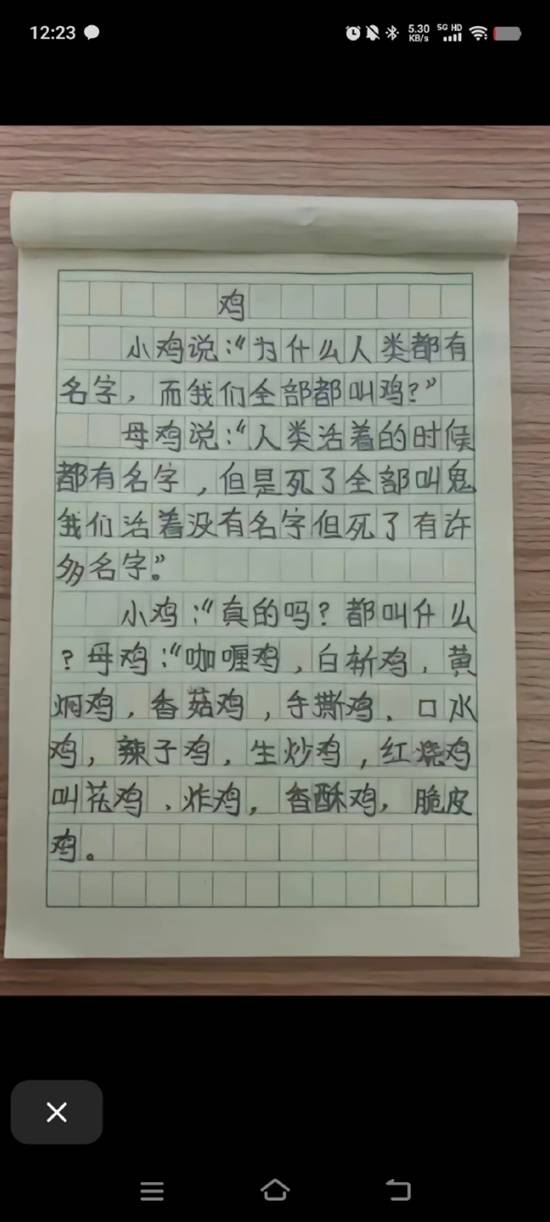 12:23
5.30 KB/s
5G HD
鸡
小鸡说:“为什么人类都有
名字，而我们全部都叫鸡?”
母鸡说:“人类活着的时候
都有名字，但是死了全部叫鬼
我们活着没有名字但死了有许
多名字”。
小鸡:“真的吗？都叫什么
？母鸡:“咖喱鸡，白斩鸡，黄
焖鸡，香菇鸡，手撕鸡、口水
鸡，辣子鸡，生炒鸡，红烧鸡
叫花鸡、炸鸡，香酥鸡，脆皮
鸡。